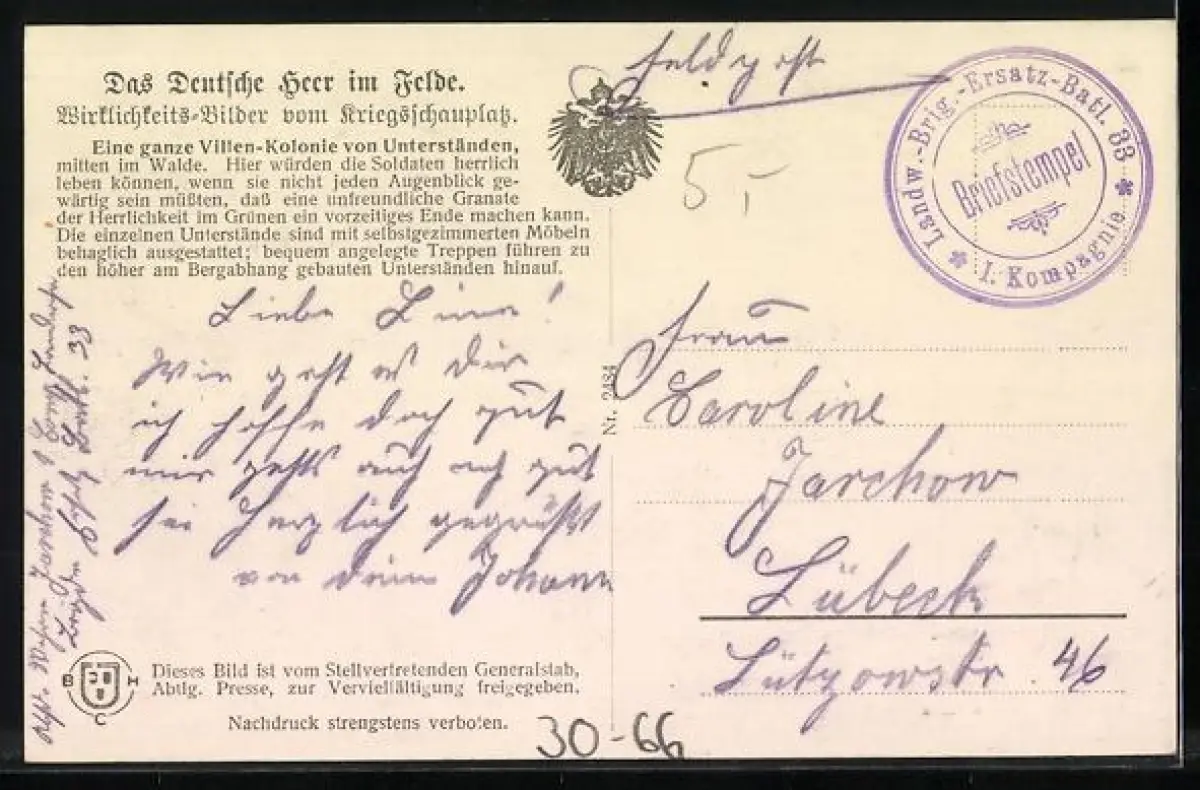 Das Deutsche Heer im Felde.
Wirklichkeits-Bilder vom Kriegsschauplatz.
Eine ganze Villen-Kolonie von Unterständen,
mitten im Walde. Hier würden die Soldaten herrlich
leben können, wenn sie nicht jeden Augenblick ge-
wärtig sein müßten, daß eine unfreundliche Granate
der Herrlichkeit im Grünen ein vorzeitiges Ende machen kann.
Die einzelnen Unterstände sind mit selbstgezimmerten Möbeln
behaglich ausgestattet; bequem angelegte Treppen führen zu
den höher am Bergabhang gebauten Unterständen hinauf.
Feldpost
5,-
Lsndw.-Brig.-Ersatz-Batl. 33
Briefstempel
1. Kompagnie
Liebe Line!
Wie geht es Dir
ich hoffe doch gut
mir gehts auch noch gut
sei Herzlich gegrüßt
von Deinem Johann
Jarchow
Batl. 33
Nr. 2484
Frau
Caroline
Jarchow
Lübeck
Lützowstr 46
B H
C
Dieses Bild ist vom Stellvertretenden Generalstab,
Abtlg. Presse, zur Vervielfältigung freigegeben.
Nachdruck strengstens verboten.
30-66